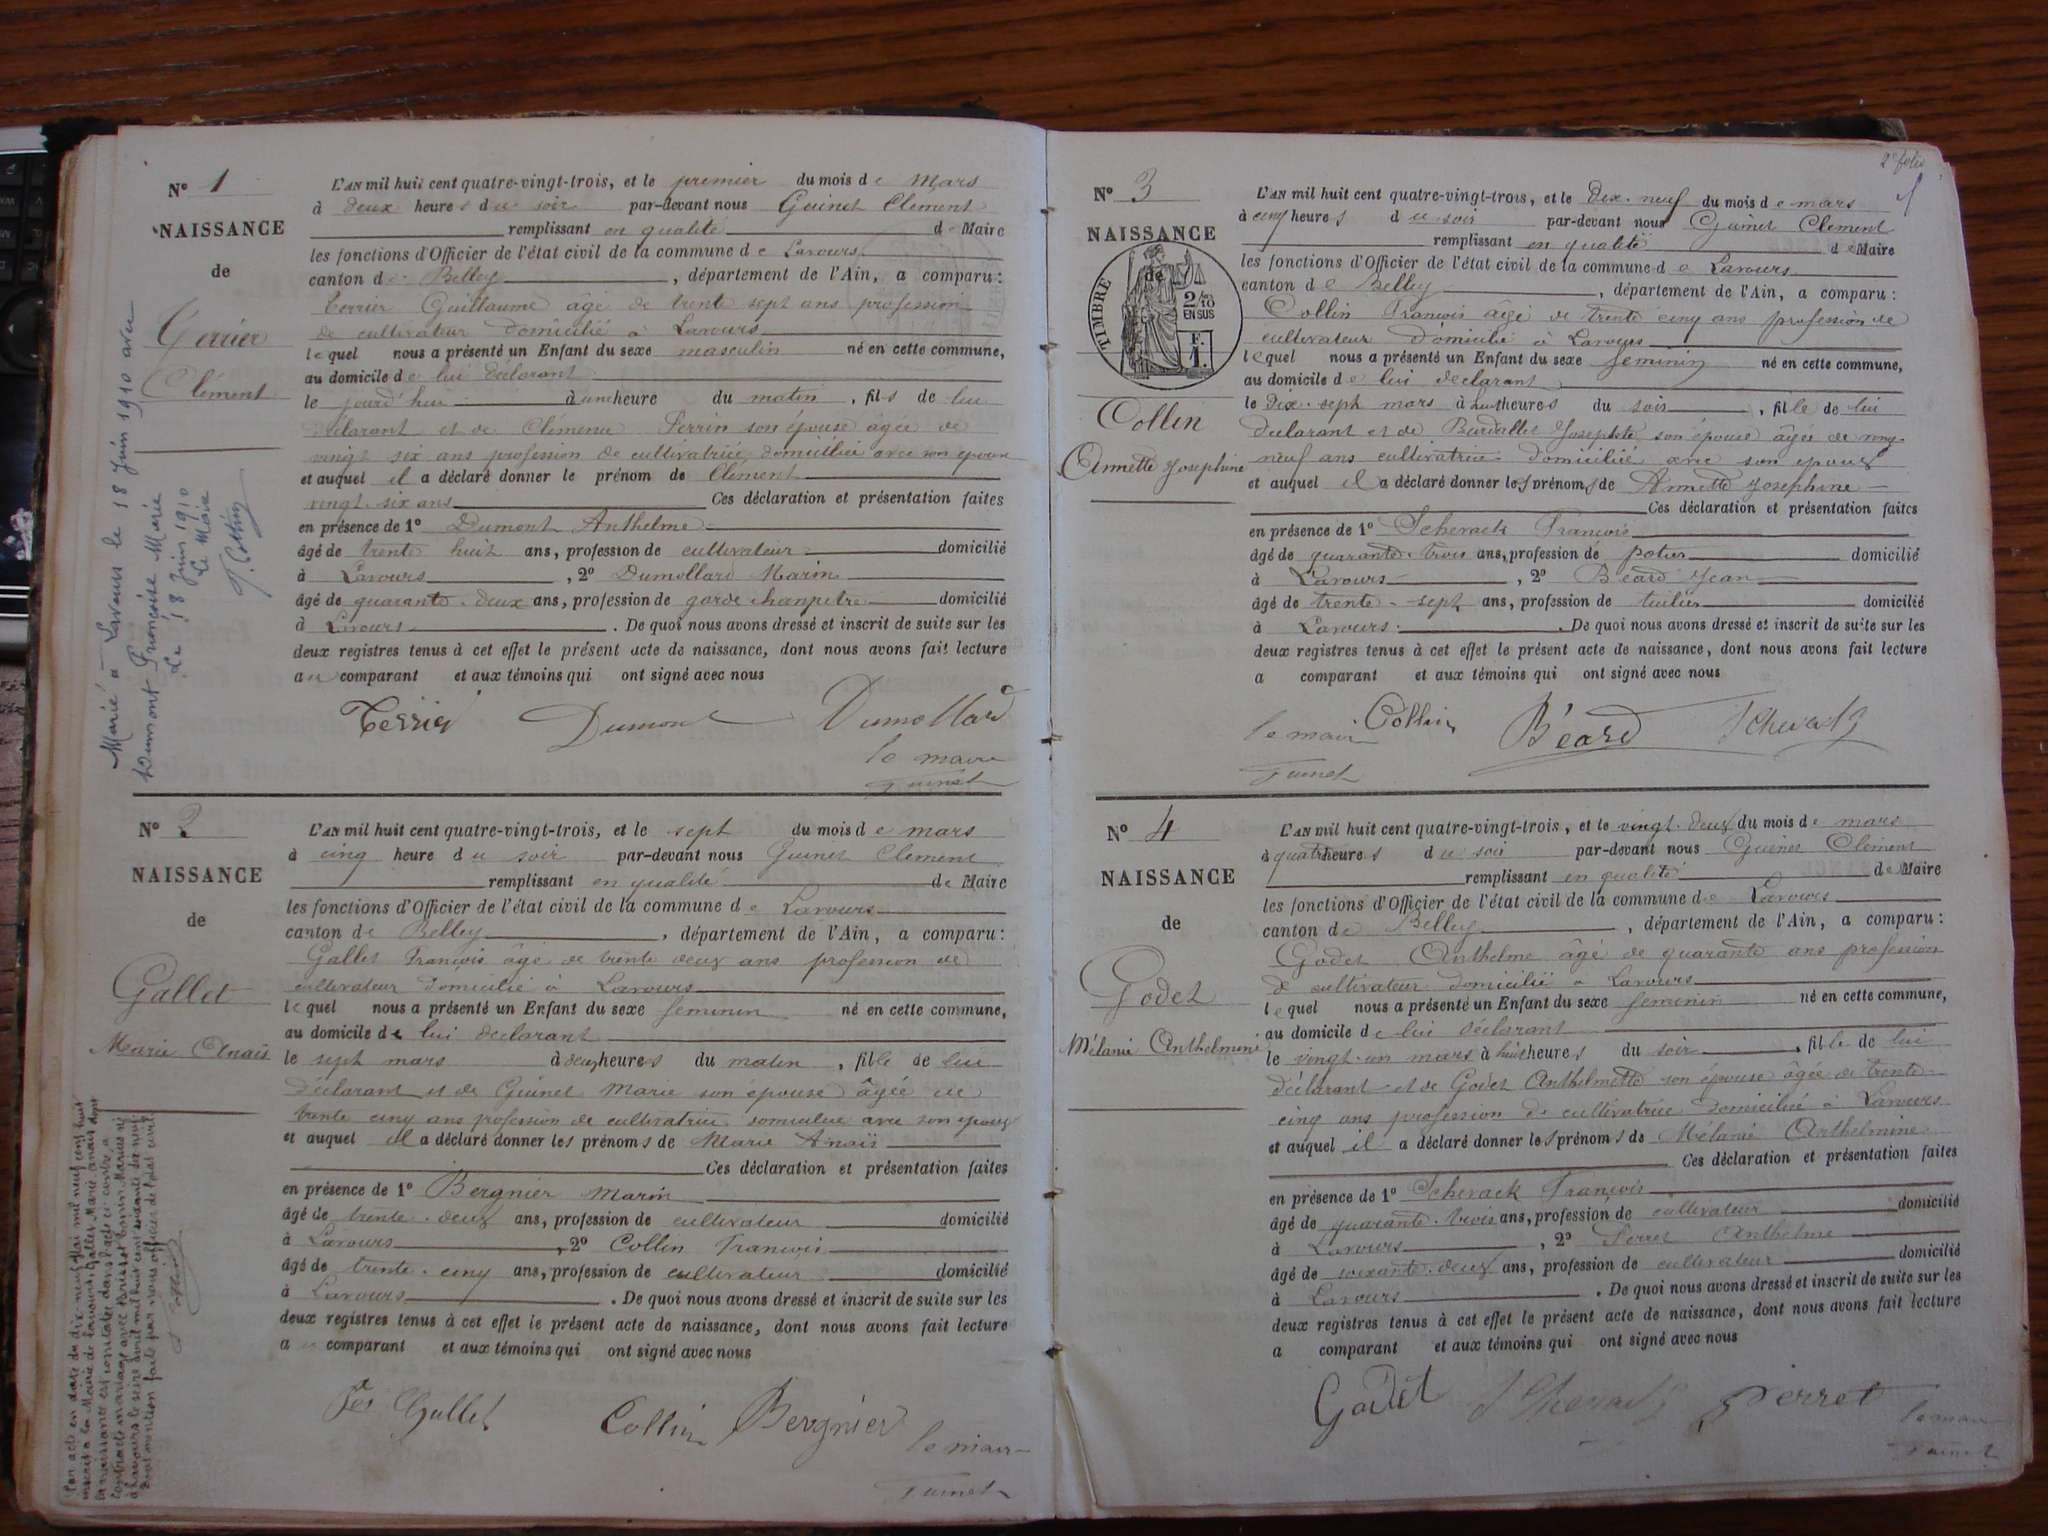 N° 1
NAISSANCE
de
Terrier
Clément
Marié à Lavours le 18 Juin 1910 avec
Dumont Françoise Marie
Le 18 Juin 1910
Le Maire
L'AN mil huit cent quatre-vingt-trois, et le premier du mois de Mars
à deux heures du soir par-devant nous Guinet Clément
remplissant en qualité de Maire
les fonctions d'Officier de l'état civil de la commune de Lavours
canton de Belley, département de l'Ain, a comparu:
Terrier Guillaume âgé de trente sept ans profession
de cultivateur domicilié à Lavours
lequel nous a présenté un Enfant du sexe masculin né en cette commune,
au domicile de lui déclarant
le jourd'hui à une heure du matin, fils de lui
déclarant et de Clémence Perrin son épouse âgée de
vingt six ans profession de cultivatrice domiciliée avec son epoux
et auquel il a déclaré donner le prénom de Clément
vingt six ans Ces déclaration et présentation faites
en présence de 1° Dumont Anthelme
âgé de trente huit ans, profession de cultivateur domicilié
à Lavours, 2° Dumollard Marin
âgé de quarante-deux ans, profession de garde champetre domicilié
à Lavours. De quoi nous avons dressé et inscrit de suite sur les
deux registres tenus à cet effet le présent acte de naissance, dont nous avons fait lecture
au comparant et aux témoins qui ont signé avec nous
Terrier Dumont Dumollard
le maire
Guinet
N° 2
NAISSANCE
de
Gallet
Marie Anaïs
Par acte en date du dix-neuf Mai mil neuf cent huit
inscrit à la Mairie de Lavours, Gallet Marie Anaïs dont
la naissance est constatée dans l'acte ci-contre a
contracté mariage avec
à Lavours le seize avril mil huit cent soixante dix neuf
Dont mention faite par nous officier de l'état civil
L'AN mil huit cent quatre-vingt-trois, et le sept du mois de mars
à cinq heure du soir par-devant nous Guinet Clement
remplissant en qualité de Maire
les fonctions d'Officier de l'état civil de la commune de Lavours
canton de Belley, département de l'Ain, a comparu:
Gallet François âgé de trente deux ans profession de
cultivateur domicilié à Lavours
lequel nous a présenté un Enfant du sexe feminin né en cette commune,
au domicile de lui déclarant
le sept mars à deux heures du matin, fille de lui
déclarant et de Guinet Marie son épouse âgée de
trente cinq ans profession de cultivatrice domiciliée avec son epoux
et auquel il a déclaré donner les prénoms de Marie Anaïs
Ces déclaration et présentation faites
en présence de 1° Bergnier Marin
âgé de trente-deux ans, profession de cultivateur domicilié
à Lavours, 2° Collin Francois
âgé de trente-cinq ans, profession de cultivateur domicilié
à Lavours. De quoi nous avons dressé et inscrit de suite sur les
deux registres tenus à cet effet le présent acte de naissance, dont nous avons fait lecture
au comparant et aux témoins qui ont signé avec nous
Gallet Collin Bergnier
le maire
Guinet
2e folio
N° 3
NAISSANCE
de
TIMBRE
2/10 EN SUS
F. 1.
Collin
Annette Josephine
L'AN mil huit cent quatre-vingt-trois, et le Dix-neuf du mois de mars
à cinq heures du soir par-devant nous Guinet Clement
remplissant en qualité de Maire
les fonctions d'Officier de l'état civil de la commune de Lavours
canton de Belley, département de l'Ain, a comparu:
Collin Francois âgé de trente cinq ans profession de
cultivateur domicilié à Lavours
lequel nous a présenté un Enfant du sexe feminin né en cette commune,
au domicile de lui declarant
le Dix-sept mars à huit heures du soir, fille de lui
declarant et de Burdallet Josephte son épouse âgée de vingt
neuf ans cultivatrice domiciliée avec son epoux
et auquel il a déclaré donner les prénoms de Annette Josephine
Ces déclaration et présentation faites
en présence de 1° Scherack Francois
âgé de quarante-trois ans, profession de potier domicilié
à Lavours, 2° Béard Jean
âgé de trente-sept ans, profession de tuilier domicilié
à Lavours. De quoi nous avons dressé et inscrit de suite sur les
deux registres tenus à cet effet le présent acte de naissance, dont nous avons fait lecture
a comparant et aux témoins qui ont signé avec nous
le maire Collin Béard Scherack
Guinet
N° 4
NAISSANCE
de
Godet
Mélanie Anthelmine
L'AN mil huit cent quatre-vingt-trois, et le vingt-deux du mois de mars
à quatre heures du soir par-devant nous Guinet Clément
remplissant en qualité de Maire
les fonctions d'Officier de l'état civil de la commune de Lavours
canton de Belley, département de l'Ain, a comparu:
Godet Anthelme âgé de quarante ans profession
de cultivateur domicilié à Lavours
lequel nous a présenté un Enfant du sexe feminin né en cette commune,
au domicile de lui déclarant
le vingt-un mars à huit heures du soir, fille de lui
déclarant et de Godet Anthelmette son épouse âgée de trente
cinq ans profession de cultivatrice domiciliée à Lavours
et auquel il a déclaré donner les prénoms de Mélanie Anthelmine
Ces déclaration et présentation faites
en présence de 1° Scherack Francois
âgé de quarante-trois ans, profession de cultivateur domicilié
à Lavours, 2° Perret Anthelme
âgé de soixante-deux ans, profession de cultivateur domicilié
à Lavours. De quoi nous avons dressé et inscrit de suite sur les
deux registres tenus à cet effet le présent acte de naissance, dont nous avons fait lecture
a comparant et aux témoins qui ont signé avec nous
Godet Scherack Perret
le maire
Guinet